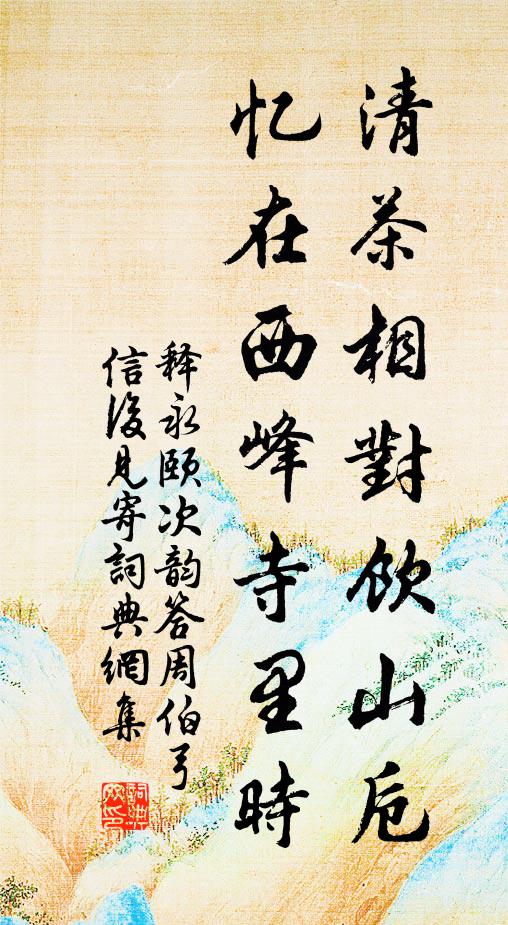 清茶相對飲山卮
忆在西峰寺里時
释永颐次韵答周伯弓
信後見寄詞典網集